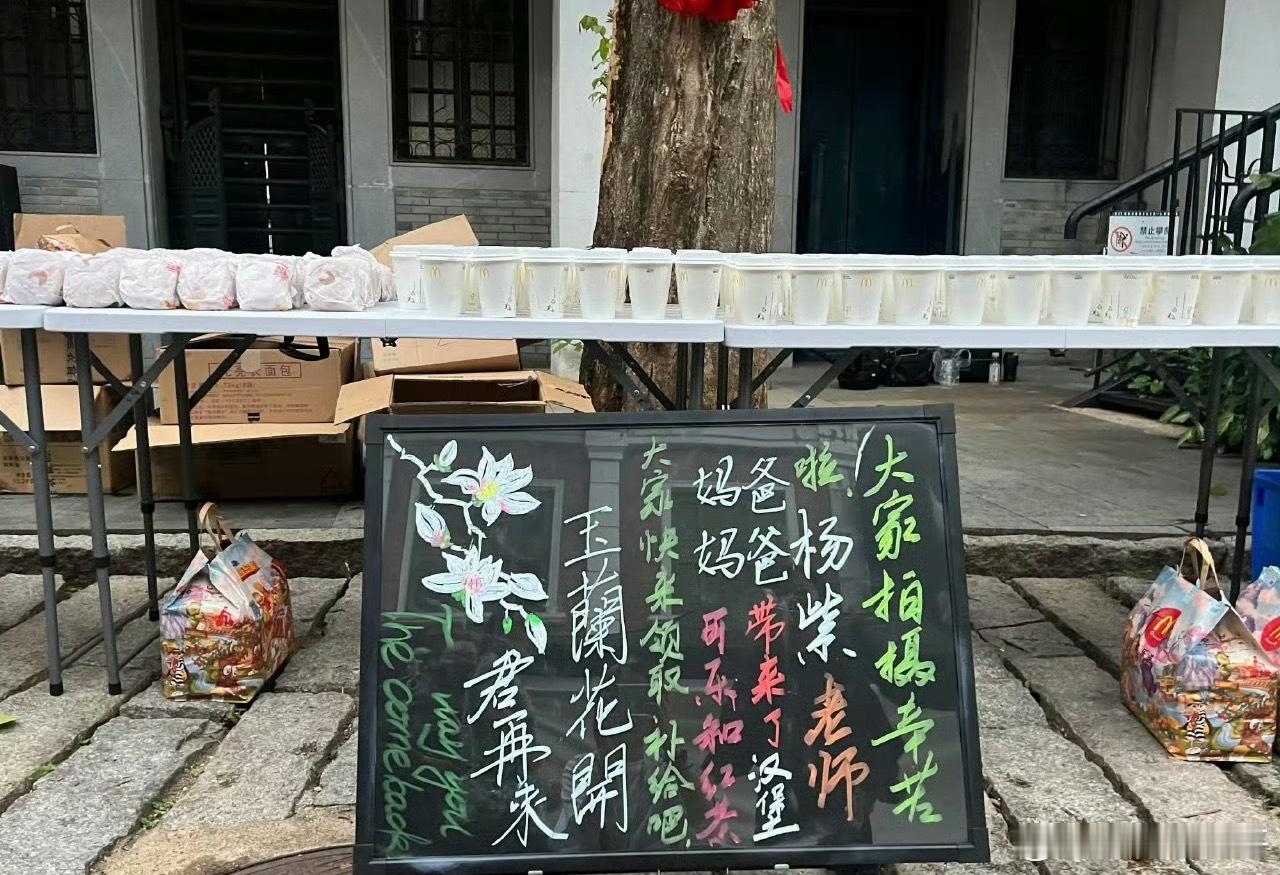 大家拍摄辛苦
啦，杨柴老师
爸爸爸爸带来了汉堡
妈妈妈妈可乐和红茶
大家快来领取补给吧
玉蘭花開
君再来
may you
come back
禁止攀爬
面包